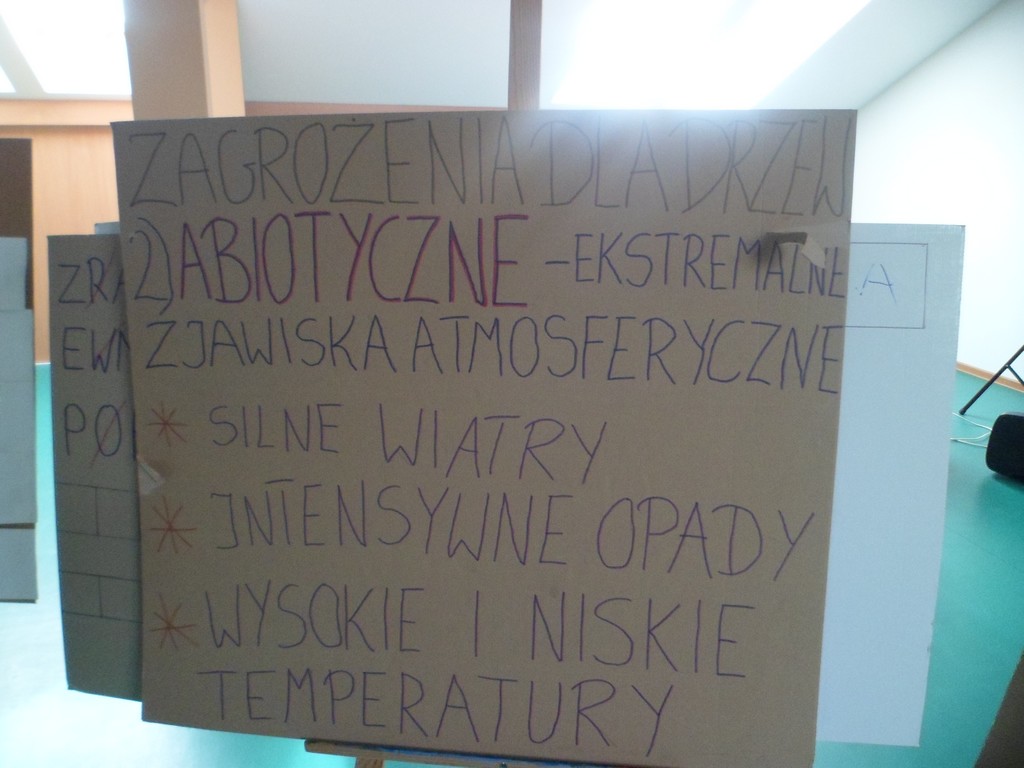 ZAGROŻENIA DLA DRZEW
2) ABIOTYCZNE - EKSTREMALNE
ZJAWISKA ATMOSFERYCZNE
* SILNE WIATRY
* INTENSYWNE OPADY
* WYSOKIE I NISKIE
TEMPERATURY